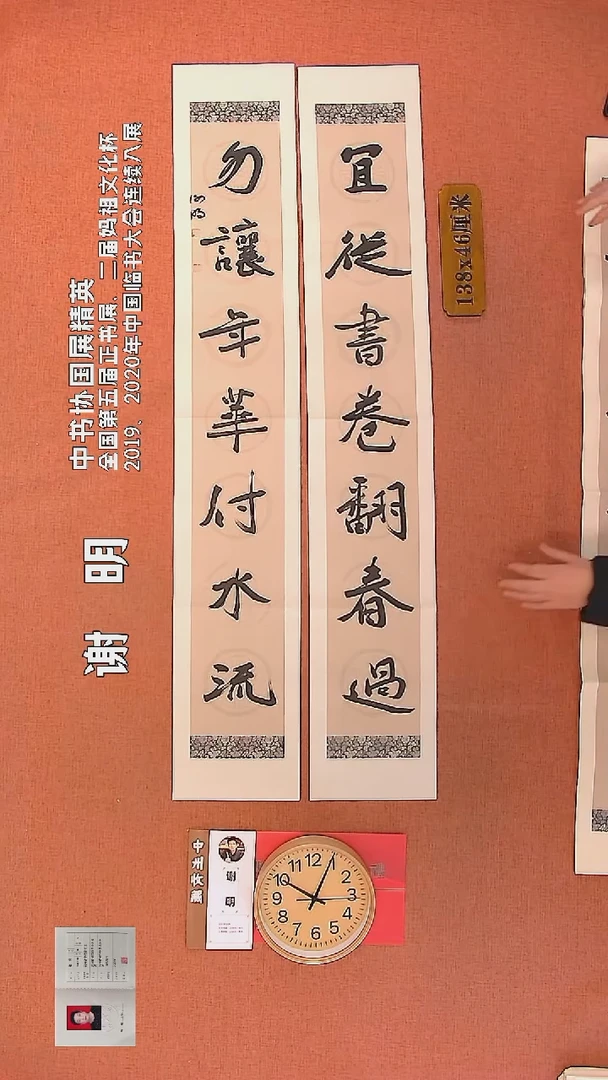 宜從書卷翻春過
勿讓年華付水流
138x46厘米
谢 明
中书协国展精英
全国第五届正书展、二届妈祖文化杯
2019、2020年中国临书大会连续入展
谢 明
12
1
2
3
4
5
6
7
8
9
10
11